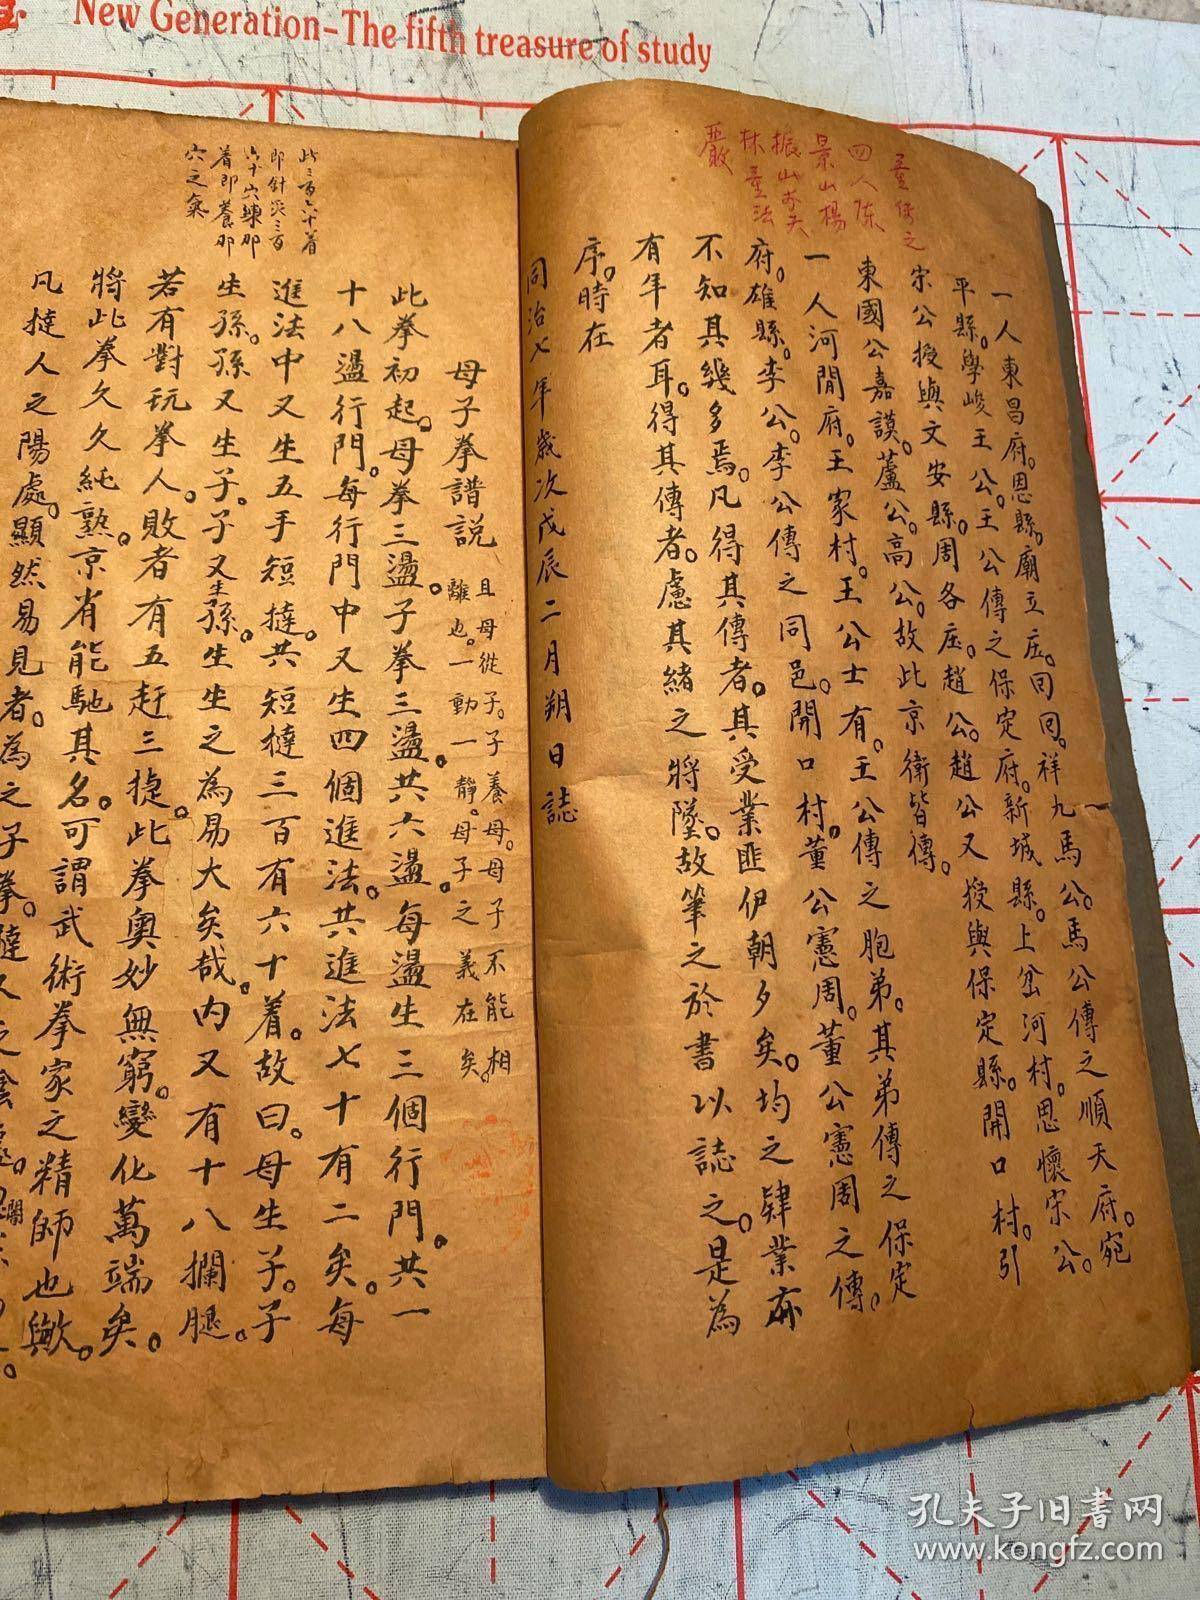 New Generation-The fifth treasure of study
董傳之
四人陈
景山楊
振山
林董法
嚴
一人東昌府。恩縣。廟立庄。回回。祥九馬公。馬公傳之順天府。宛
平縣。學峻王公。王公傳之保定府。新城縣。上岔河村。思懷宋公。
宋公授與文安縣。周各庄。趙公。趙公又授與保定縣。開口村。引
東國公嘉謨。蘆公。高公。故此京衛皆傳。
一人河間府。王家村。王公士有。王公傳之胞弟。其弟傳之保定
府。雄縣。李公。李公傳之同邑。開口村。董公憲周。董公憲周之傳。
不知其幾多焉。凡得其傳者。其受業匪伊朝夕矣。均之肄業亦
有年者耳。得其傳者。慮其緒之將墜。故筆之於書以誌之。是為
序。時在
同治七年歲次戊辰二月朔日誌
母子拳譜説
且母從子。子養母。母子不能相
離也。一動一靜。母子之義在矣。
此拳初起。母拳三盪。子拳三盪。共六盪。每盪生三個行門。共一
十八盪行門。每行門中又生四個進法。共進法七十有二矣。每
進法中又生五手短撻。共短撻三百有六十着。故曰。母生子。子
生孫。孫又生子。子又生孫。生生之為易大矣哉。内又有十八攔腿。
若有對玩拳人。敗者有五赶三捷。此拳奥妙無窮。變化萬端矣。
將此拳久久純熟。京省能馳其名。可謂武術拳家之精師也歟。
凡撻人之陽處。顯然易見者。為之子拳。撻人之陰處。
此三百六十着
即針灸三百
六十穴練那
着即養那
穴之氣
孔夫子旧書网
www.kongfz.com